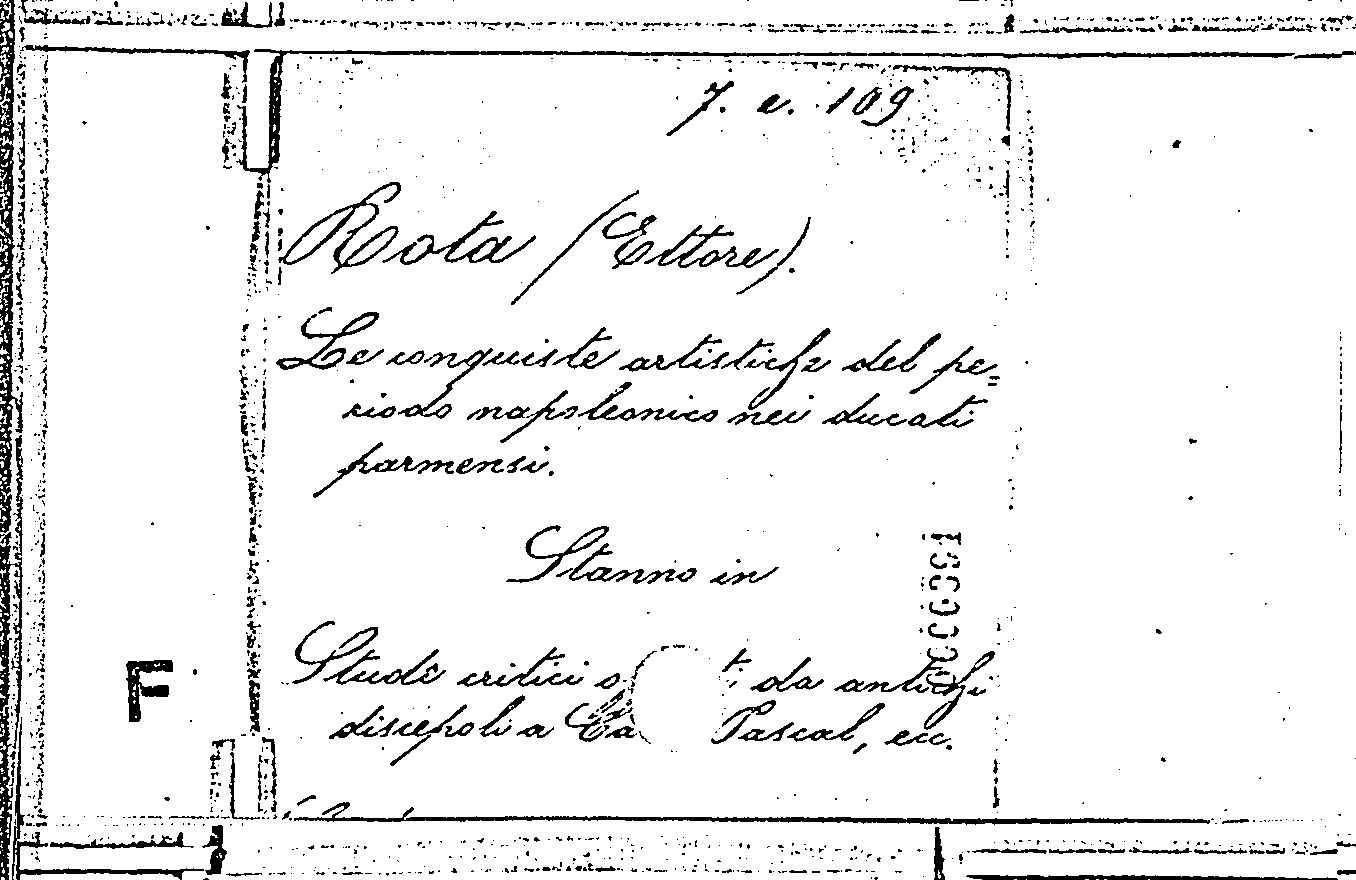 7. e. 109
Rota (Ettore).
Le conquiste artistiche del pe=
riodo napoleonico nei ducati
parmensi.
Stanno in
Studî critici da antichi
discepoli a Pascal, ecc.
F